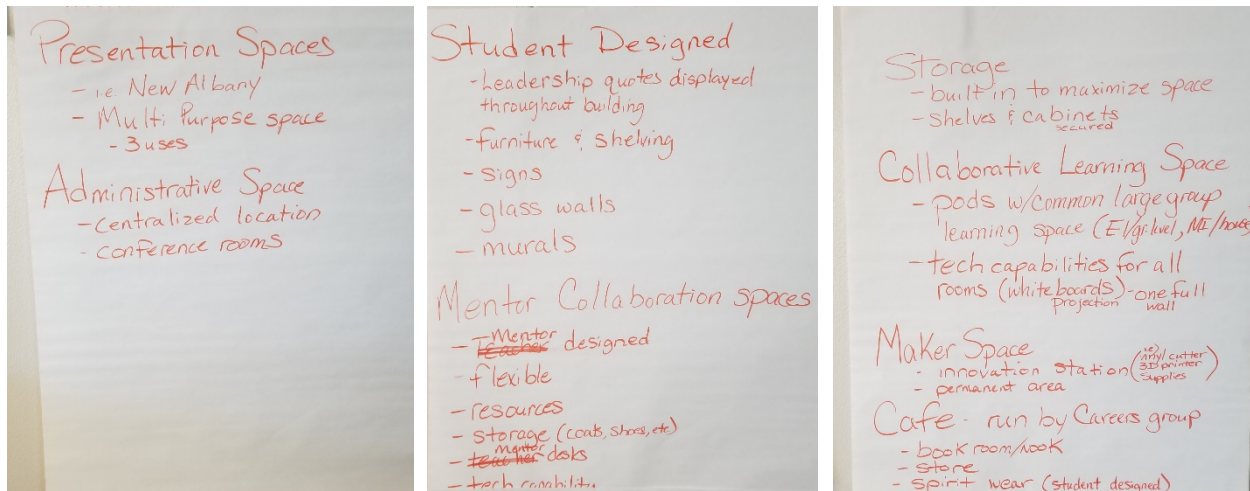 Presentation Spaces
- i.e. New Albany
- Multi Purpose space
- 3 uses
Administrative Space
- centralized location
- conference rooms
Student Designed
- Leadership quotes displayed
throughout building
- furniture & shelving
- signs
- glass walls
- murals
Mentor Collaboration spaces
Mentor
- teacher designed
- flexible
- resources
- storage (coats, shoes, etc)
mentor
- teacher desks
- tech capability
Storage
- built in to maximize space
- shelves & cabinets
secured
Collaborative Learning Space
- pods w/common large group
learning space (El/gr.level, MI/house
- tech capabilities for all
rooms (whiteboards) - one full
projection wall
Maker Space
- innovation station (i.e. vinyl cutter
3D printer
supplies)
- permanent area
Cafe - run by Careers group
- book room/nook
- store
- spirit wear (student designed)